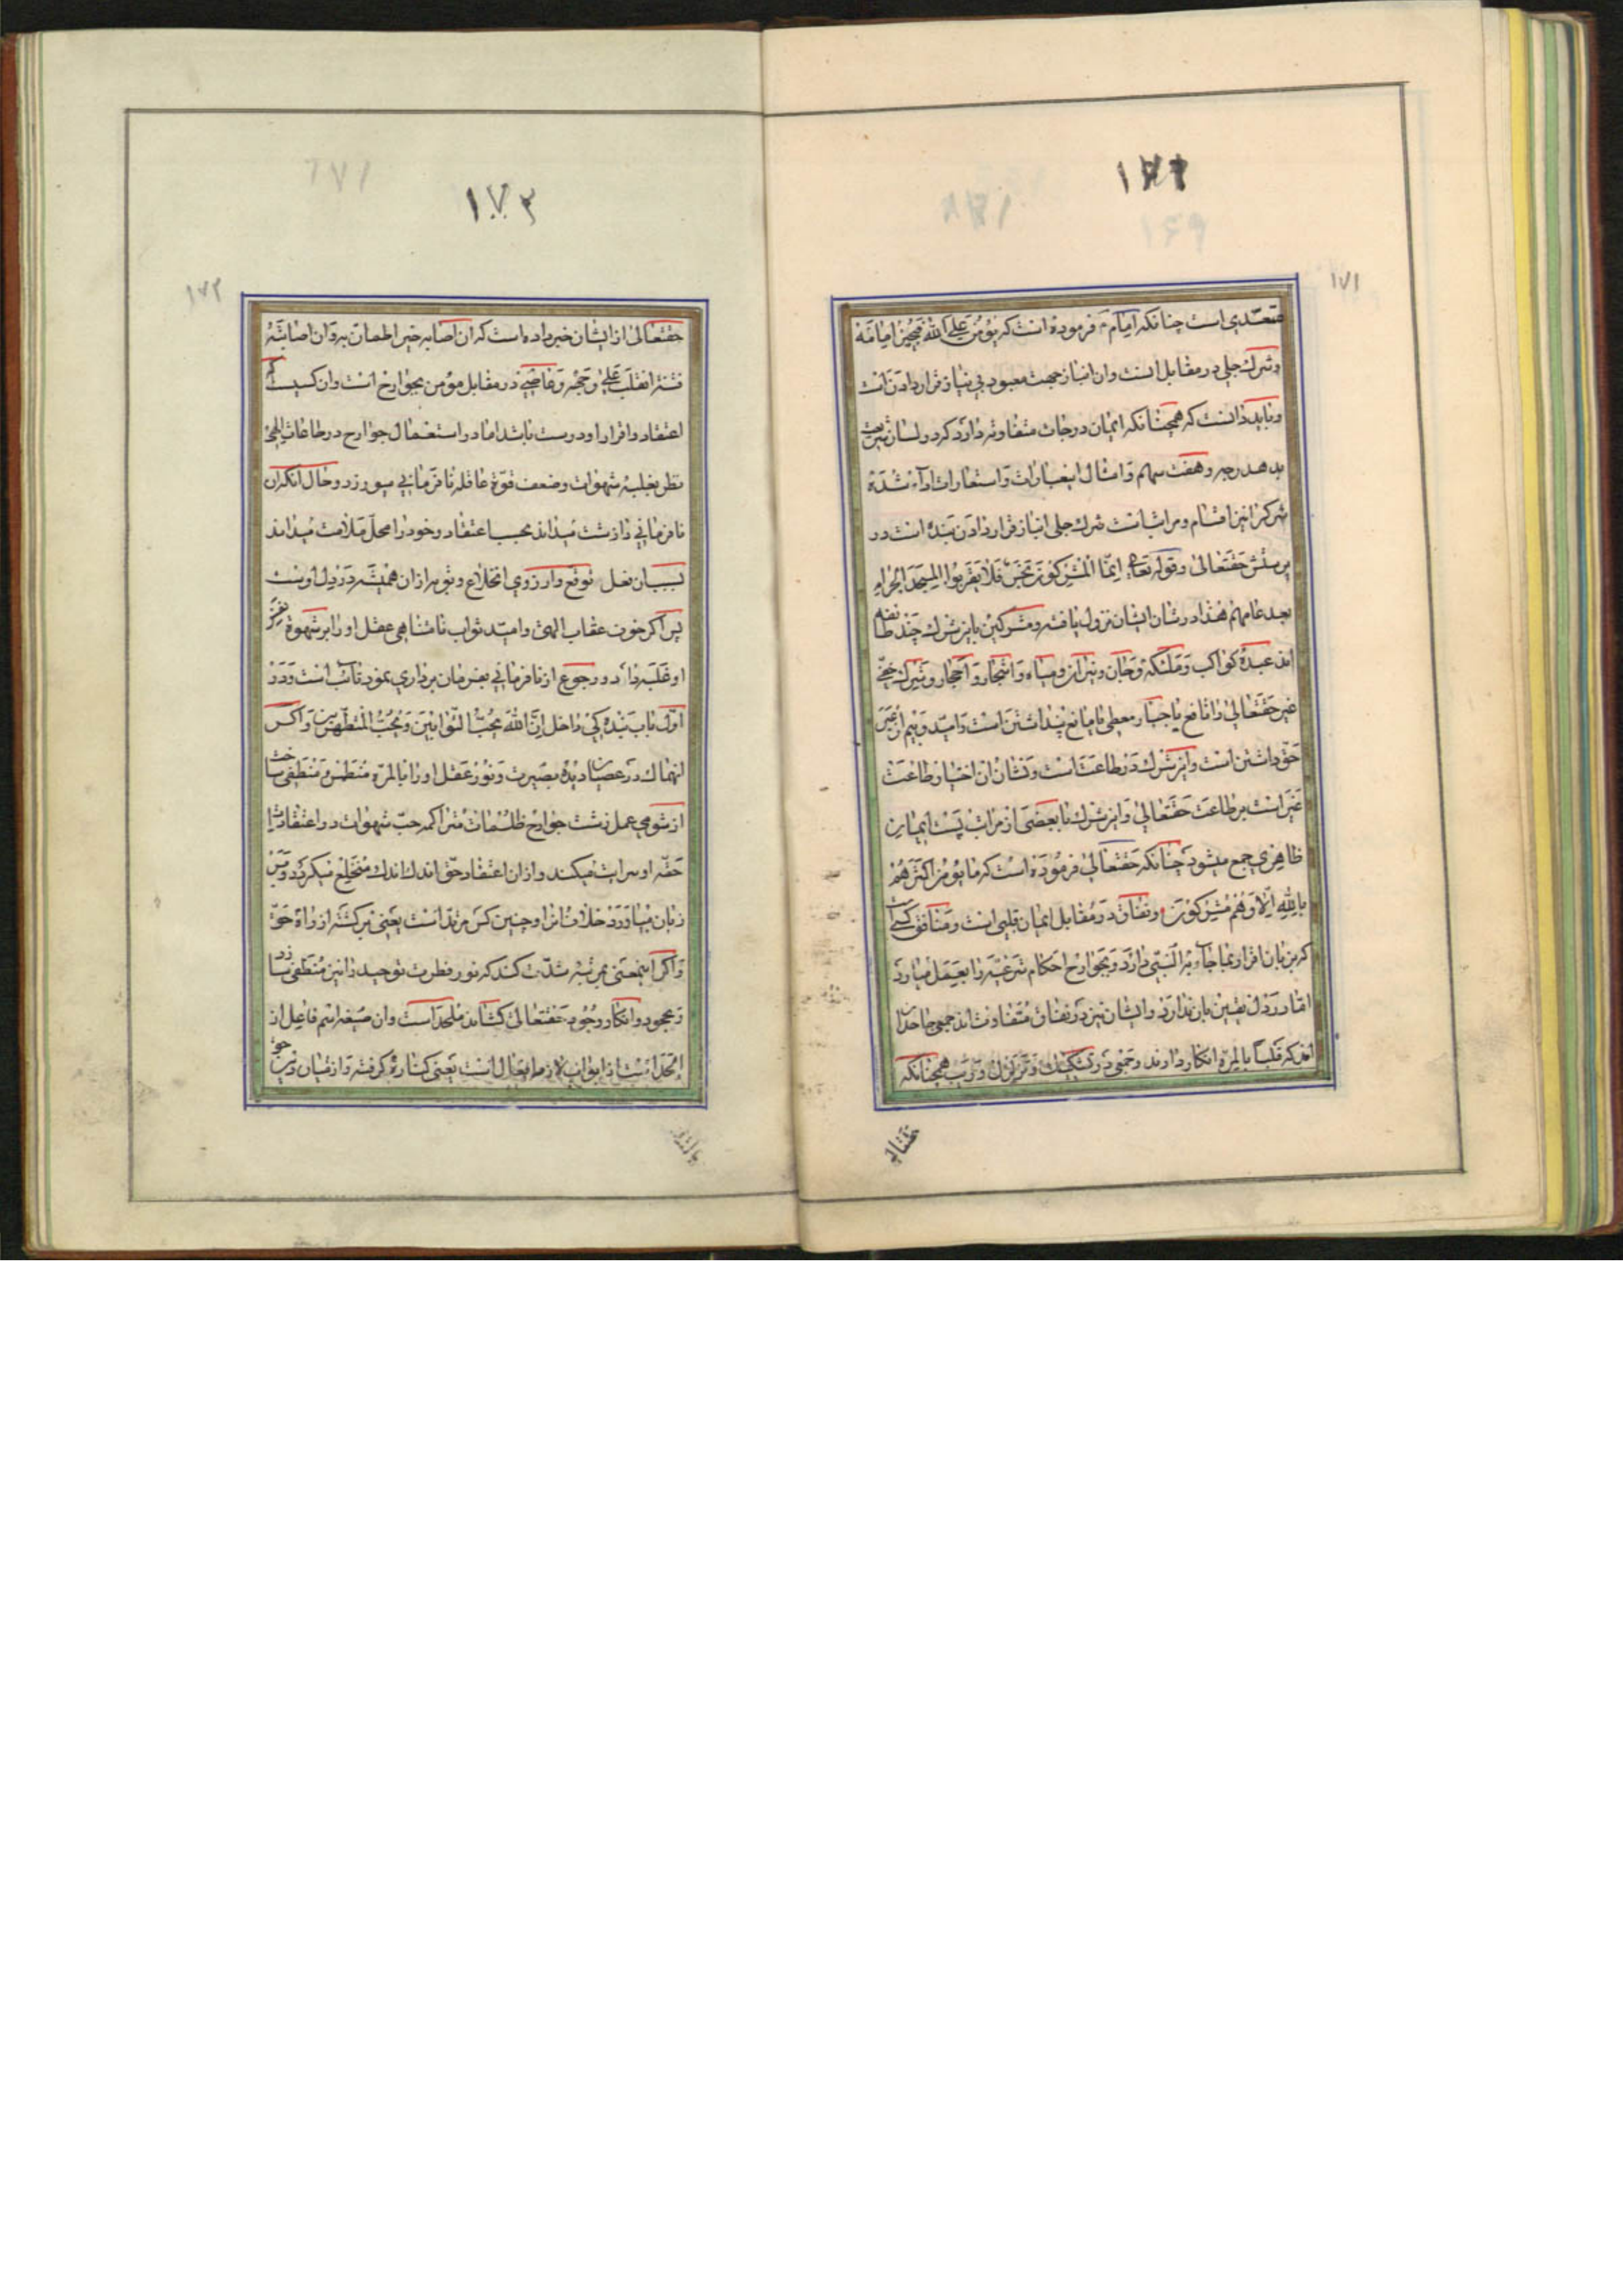 ۱۷۲
۱۷۱
متعدی است چنانکه امام فرموده است که یؤمن علی الله فیجیز امانه
و شرک جلی در مقابل است وان انباز جهت معبود بی نیاز قرار دادن است
و باید دانست که همچنانکه ایمان درجات متفاوته دارد که در لسان شریعت
بدهدرجه و هفت سهم و امثال اینعبارات و استعارات اداء شده
شرک نیز اقسام و مراتبست شرک جلی انباز قرار دادن بنده است در
پرستش حقتعالی و قوله تعالی انما المشرکون نجس فلا یقربوا المسجد الحرام
بعد عامهم هذا در شان ایشان نزول یافته و مشرکین باین شرک چند طائفه
اند عبده کواکب و ملئکه و جان و نیران و میاه و اشجار و احجار و شرک خفی
غیر حقتعالی را نافع یا جبار معطی یا مانع پنداشتن است و امید و بیم از غیر
حق داشتن است و این شرک در طاعت است و نشان ان اختیار طاعت
غیر است بر طاعت حقتعالی و این شرک با بعضی از مراتب پست ایمان
ظاهری جمع میشود چنانکه حقتعالی فرموده است که ما یؤمن اکثرهم
بالله الا و هم مشرکون و نفاق در مقابل ایمان قلبی است و منافق کسی است
که بزبان اقرار بما جاء به النبی دارد و بجوارح احکام شرعیه را بعمل میاورد
اما در دل یقین بان ندارد و ایشان نیز در نفاق متفاوت اند جمعی جاحدان
اند که قلبا بالمره انکار دارند و جمعی در تشکیک و تزلزل و ریب همچنانکه
حقتعالی
۱۷۳
۱۷۲
حقتعالی از ایشان خبر داده است که ان اصابه خیر اطمان به و ان اصابته
فتنة انقلب علی وجهه و عاصی در مقابل مؤمن بجوارح است وان کسیست که
اعتقاد و اقرار او درست باشد اما در استعمال جوارح در طاعات الهی
نظر بغلبه شهوات و ضعف قوه عاقله نافرمانی میورزد و حال انکه ان
نافرمانی را زشت میداند بحسب اعتقاد و خود را محل ملامت میداند
بسبب ان فعل توقع و ارزوی انخلاع و توبه از ان همیشه در دل اوست
پس اگر خوف عقاب الهی و امید ثواب نامتناهی عقل او را بر شهوة
او غلبه داد و رجوع از نافرمانی بفرمان برداری نمود تائب است و در
اول باب بندگی داخل ان الله یحب التوابین و یحب المتطهرین و اگر
انهماک در عصیان دیده بصیرت و نور عقل او را بالمره منطمس و منطفی ساخت
از شومی عمل زشت جوارح ظلمات متراکمه حب شهوات در اعتقادات
حقه او سرایت میکند و از ان اعتقاد حق اندک اندک منخلع میگردد و بر
زبان میاورد خلاف انرا و چنین کس مرتد است یعنی برگشته از راه حق
و اگر اینمعنی بمرتبه شدت کند که نور فطرت توحید را نیز منطفی سازد
و بجحود و انکار وجود حقتعالی کشاند ملحد است وان صیغه اسم فاعل از
الحد است از ابواب لازم افعال است یعنی کناره گرفته و از میان